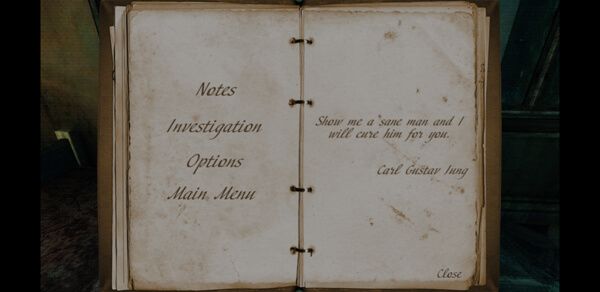 Notes
Investigation
Options
Main Menu
Show me a sane man and I
will cure him for you.
Carl Gustav Jung
Close